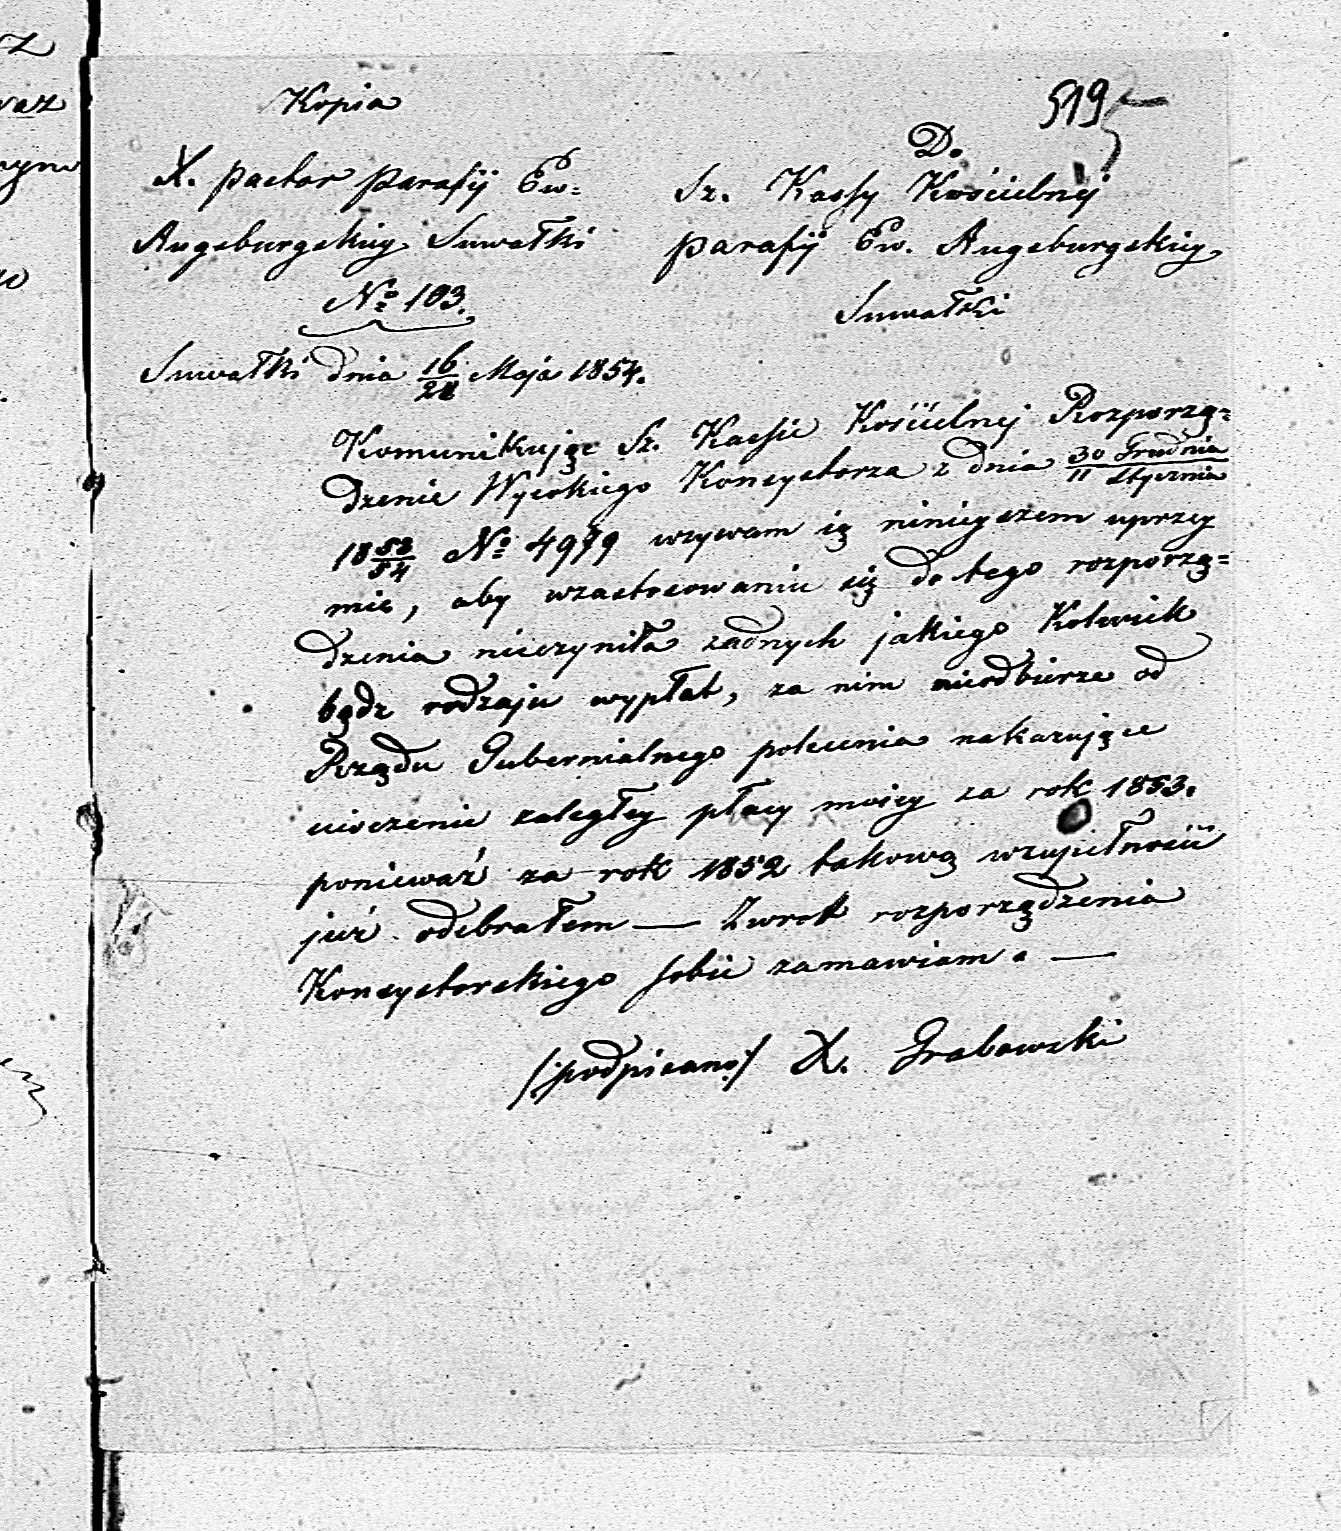 Kopia
519
X. pastor parafij Ew=
Augsburgskiey Suwałki
No 103.
D.
Sz. Kassy Kościelney
parafij Ew. Augsburgskiey
Suwałki
Suwałki dnia 16/28 Maja 1854.
Komunikując Sz. Kassie Kościelnej Rozporzą=
dzenie Wysokiego Konsystorza z dnia 30 Grudnia/11 Stycznia
18 53/54 No 4979 wzywam ią ninieyszem uprzey
mie, aby wzastosowaniu się do tego rozporzą=
dzenia nieczyniła żadnych jakiego Kolwiek
bądz rodzaju wypłat, za nim nieodbierze od
Rządu Gubernialnego polecenia nakazujące
uiszczenie zaległey płacy moiey za rok 1853.
ponieważ za rok 1852 takową wzupełności
już odebrałem — Zwrot rozporządzenia
Konsystorskiego sobie zamawiam. —
/:podpisano:/ X. Grabowski